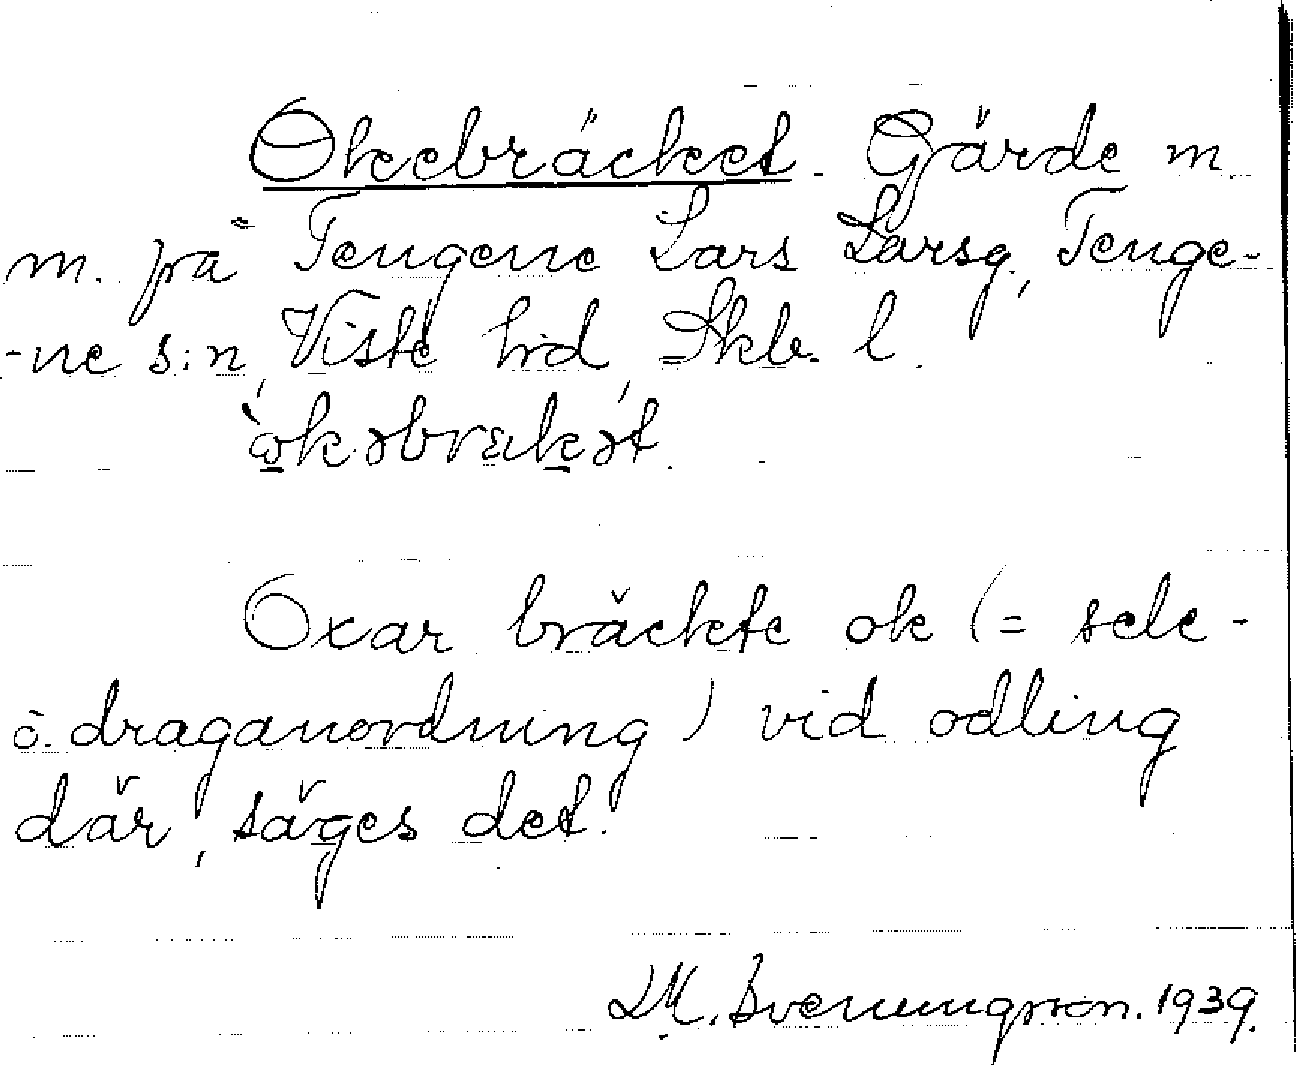 Okebräcket. Gärde m.
m. på Tengene Lars Larsg., Tenge-
-ne s:n, Viste hd, Skb. l.
òkəbrækət.
Oxar bräckte ok (= sele-
o. draganordning) vid odling
där, säges det.
D.M. Svenungsson. 1939.